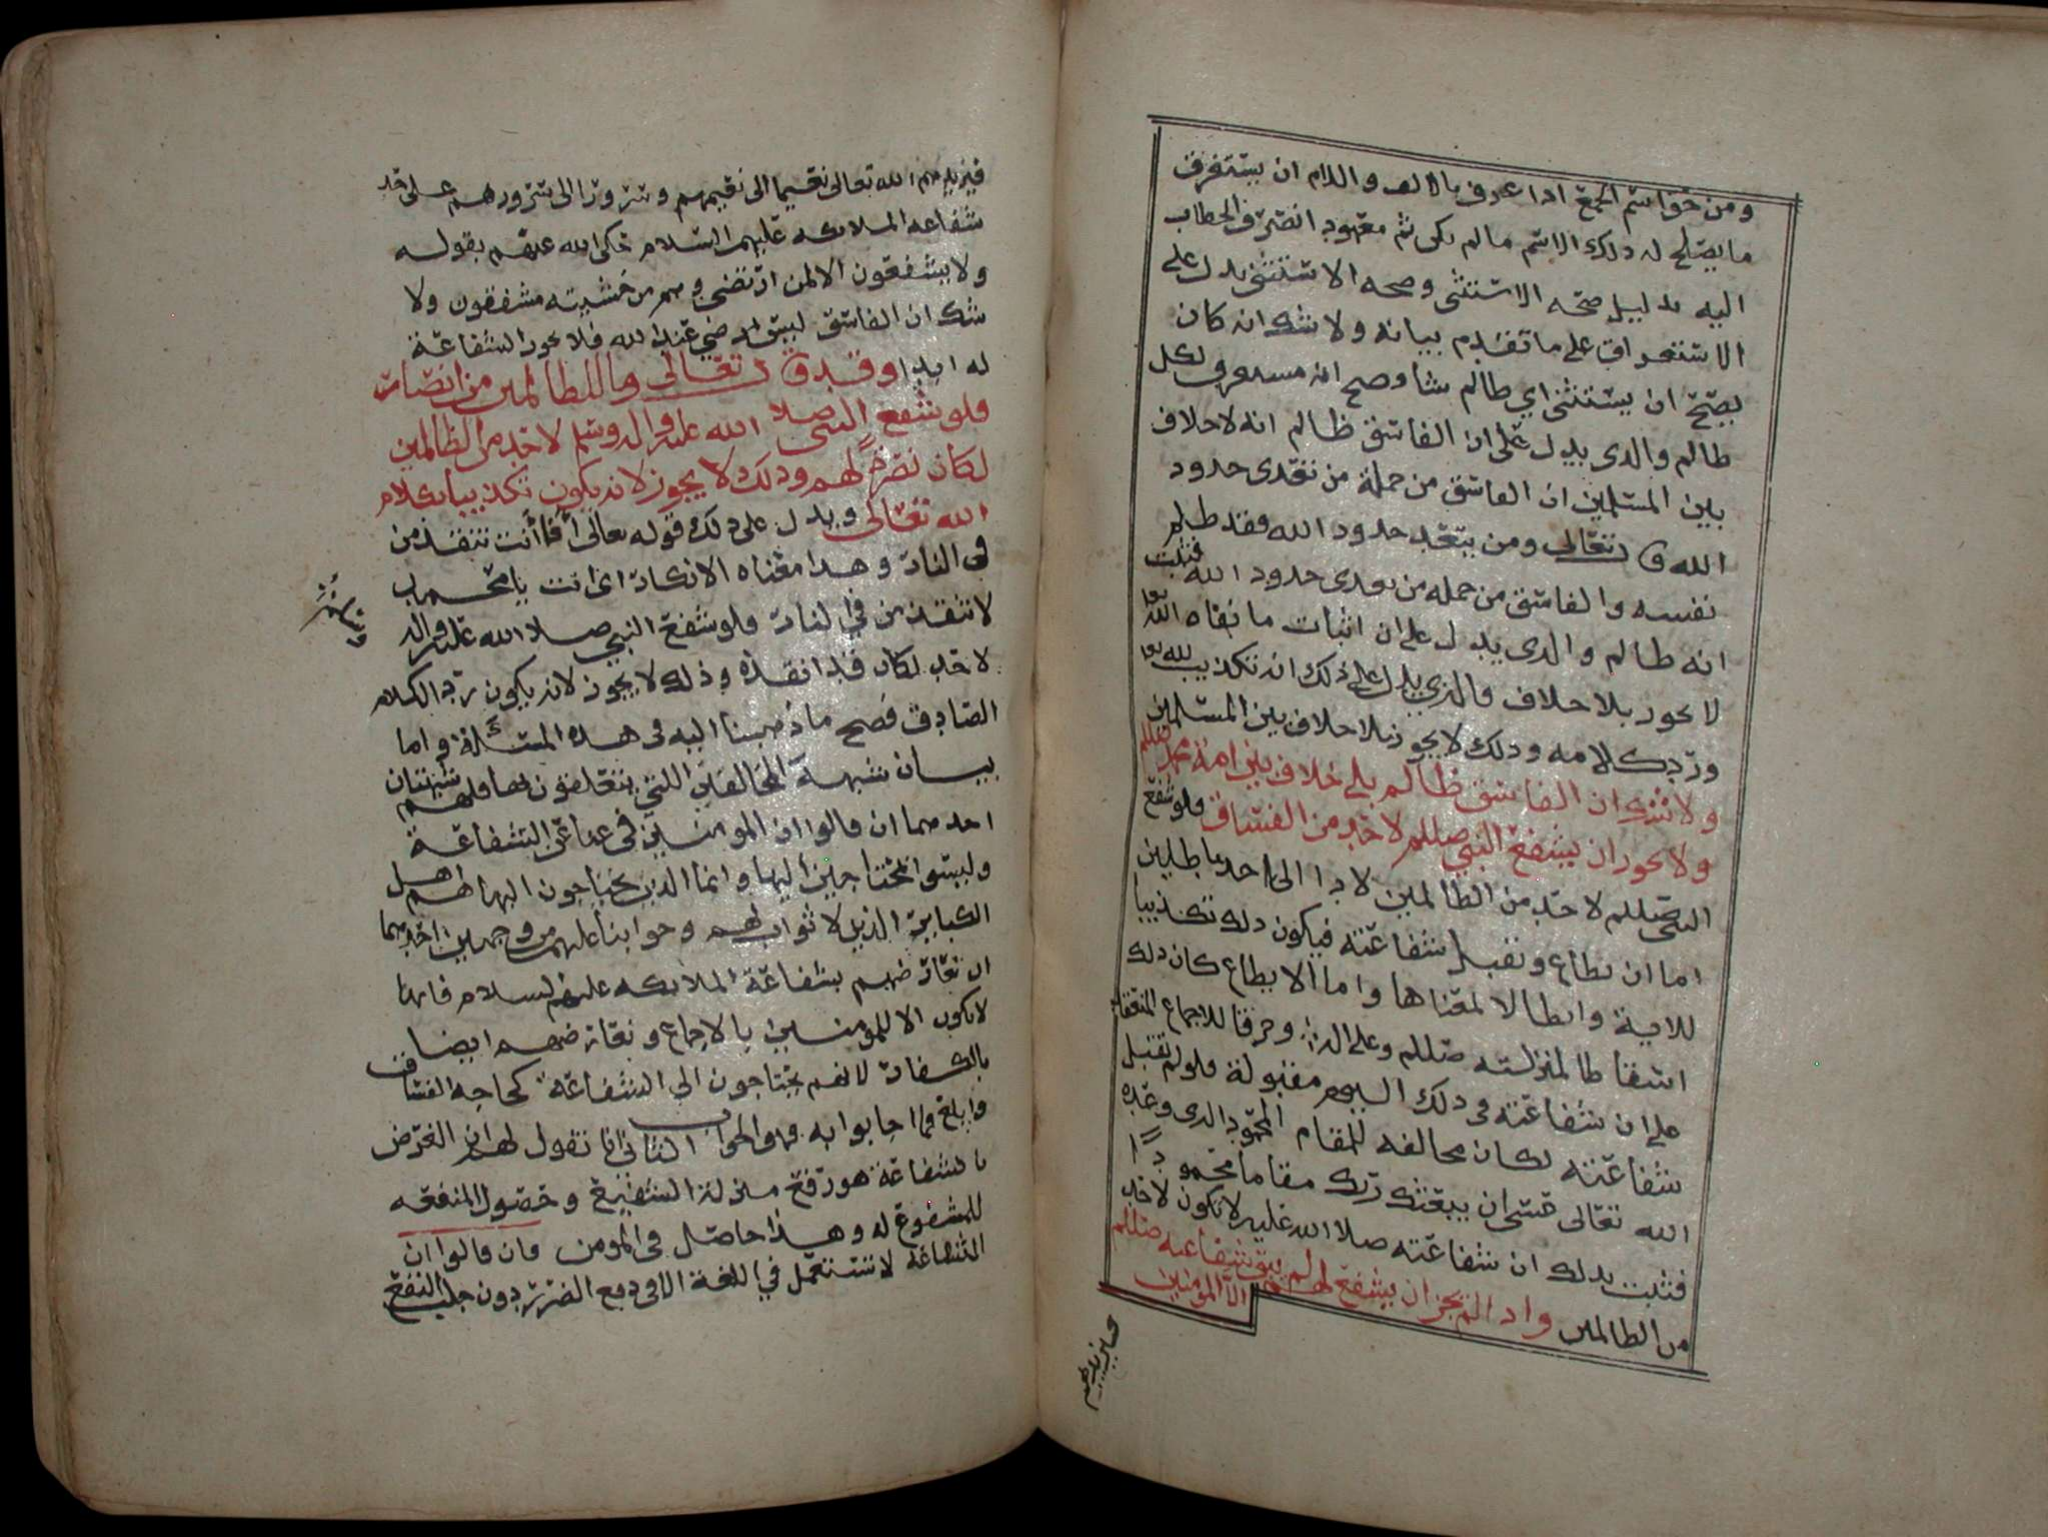 ومن خواسم الجمع اذا عرف بالالف واللام ان يستغرق
ما يصلح له ذلك الاسم ما لم يكن ثم معهود انصرف الخطاب
اليه بدليل صحه الاستثنى وصحه الاستثنى يدل على
الاستغراق على ما تقدم بيانه ولا شك انه كان
يصح ان يستثنى اي ظالم شا وصح انه مستغرق لكل
ظالم والدى يدل على ان الفاسق ظالم انه لا خلاف
بين المسلمين ان الفاسق من جملة من تعدى حدود
الله وق‍ تعالى ومن يتعد حدود الله فقد ظلم
نفسه والفاسق من جمله من تعدى حدود الله فثبت
انه ظالم والدى يدل على ان اثبات ما نفاه الله تعا
لا يجوز بلا خلاف فالذي يدل على ذلك انه تكذيب لله تعا
ورد كلامه وذلك لا يجوز بلا خلاف بين المسلمين
ولا شك ان الفاسق ظالم بلا خلاف بين امة محمد صللم
ولا يجوز ان يشفع النبي صللم لاحد من الفساق فلو شفع
النبي صللم لاحد من الظالمين لادا الى احد باطلين
اما ان يطاع وتقبل شفاعته فيكون ذلك تكذيبا
للاية وابطالا لمعناها واما الا يطاع كان ذلك
اسقاطا لمنزلته صللم وعلى اله وخرقا للاجماع المنعقد
على ان شفاعته في ذلك اليوم مقبولة فلو لم تقبل
شفاعته لكان مخالفه للمقام المحمود الدى وعده
الله تعالى عسى ان يبعثك ربك مقاما محمودا
فثبت بدلك ان شفاعته صلا الله عليه لا تكون لاحد
من الظالمين واذا لم يجز ان يشفع لهم لم يبق شفاعته صللم
الا للمؤمنين
فيزيدهم
فيزيدهم الله تعالى نعيما الى نعيمهم وسرورا الى سرورهم على حد
شفاعه الملائكه عليهم السلام حكى الله عنهم بقوله
ولا يشفعون الا لمن ارتضى وهم من خشيته مشفقون ولا
شك ان الفاسق ليس مرضي عند الله فلا يجوز الشفاعة
له ابدا وقد ق‍ تعالى وما للظالمين من انصار
فلو شفع النبي صلا الله عليه واله وسلم لاحد من الظالمين
لكان نصرةً لهم وذلك لا يجوز لانه يكون تكذيبا لكلام
الله تعالى ويدل على ذلك قوله تعالى أفأنت تنقذ من
في النار وهدا معناه الانكار اي انت يا محمد
لا تنقذ من في النار فلو شفع النبي صلا الله عليه واله
لاحد لكان قد انقذه وذلك لا يجوز لانه يكون رد الكلام
الصادق فصح ما ذهبنا اليه في هذه المسئلة واما
بيان شبهة المخالفين اللتي يتعلقون بها فلهم شبهتان
احدهما ان قالوا ان المومنين في غنا عن الشفاعة
وليسوا محتاجين اليها وانما الدين يحتاجون اليها هم اهل
الكباير الذين لا ثواب لهم وجوابنا عليهم من وجهين احدهما
ان نعارضهم بشفاعة الملائكه عليهم السلام فانها
لا تكون الا للمومنين بالاجماع ونعارضهم ايضا
بالكفار لانهم يحتاجون الى الشفاعة كحاجه الفساق
وابلغ فما اجابوا به فهو الجواب الثاني انا نقول لهم ان الغرض
بالشفاعة هو رفع منزلة الشفيع وحصول المنفعه
للمشفوع له وهذا حاصل في المومن فان قالوا ان
الشفاعة لا تستعمل في اللغة الا في دفع الضرر دون جلب النفع